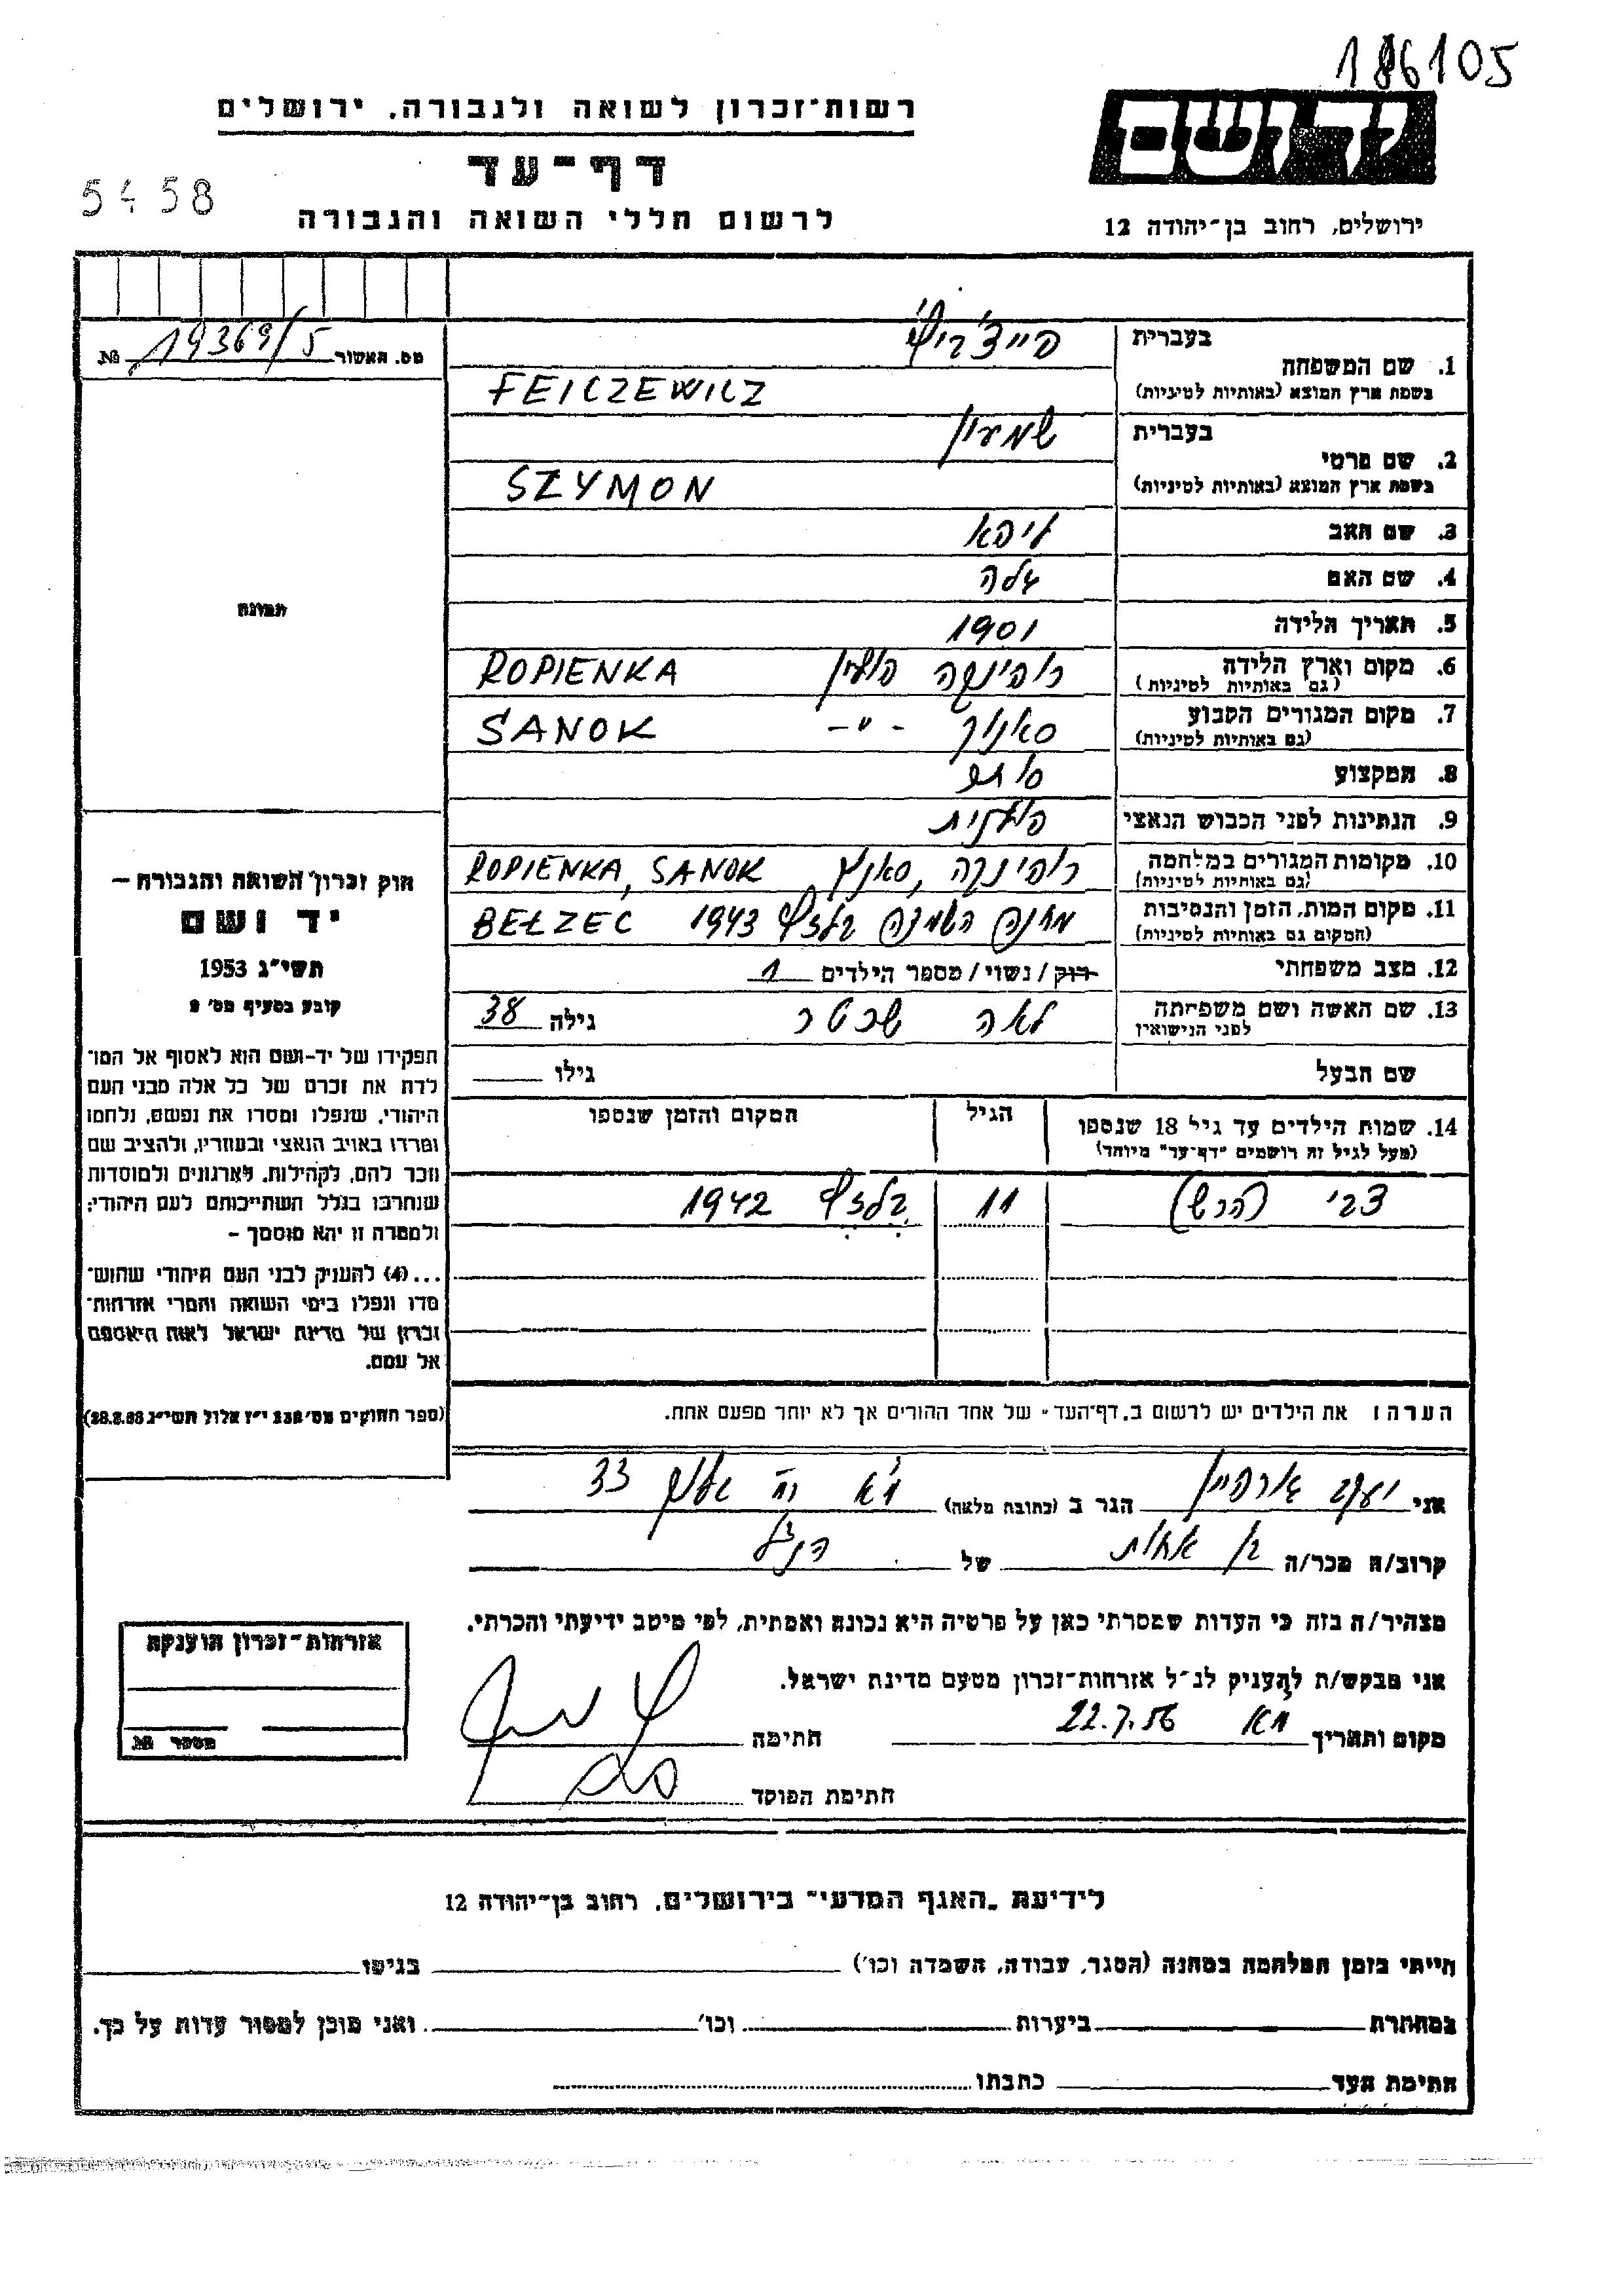 186105
יד ושם
רשות־זכרון לשואה ולגבורה, ירושלים
דף־עד
5458
לרשום חללי השואה והגבורה
ירושלים, רחוב בן־יהודה 12
מס. האשור 19369/5 №
בעברית
1. שם המשפחה
בשפת ארץ המוצא (באותיות לטיניות) FEICZEWICZ
בעברית שמעון
2. שם פרטי
בשפת ארץ המוצא (באותיות לטיניות) SZYMON
3. שם האב ליפא
4. שם האם
5. תאריך הלידה 1901
6. מקום וארץ הלידה רופינקה פולין ROPIENKA
(גם באותיות לטיניות)
7. מקום המגורים הקבוע סאנוק -"- SANOK
(גם באותיות לטיניות)
8. המקצוע סוחר
9. הנתינות לפני הכבוש הנאצי פולנית
10. מקומות המגורים במלחמה רופינקה, סאנוק ROPIENKA, SANOK
(גם באותיות לטיניות)
11. מקום המות, הזמן והנסיבות מחנה השמדה בלזץ 1943 BEŁZEC
(המקום גם באותיות לטיניות)
12. מצב משפחתי רוק/נשוי/מספר הילדים 1
13. שם האשה ושם משפחתה לאה שכטר גילה 38
לפני הנישואין
שם הבעל גילו
14. שמות הילדים עד גיל 18 שנספו הגיל המקום והזמן שנספו
(מעל לגיל זה רושמים "דף־עד" מיוחד)
צבי (הרש) 11 בלזץ 1942
הערה: את הילדים יש לרשום ב„דף־העד" של אחד ההורים אך לא יותר מפעם אחת.
תמונה
חוק זכרון השואה והגבורה —
יד ושם
תשי"ג 1953
קובע בסעיף מס׳
תפקידו של יד-ושם הוא לאסוף אל המו־
לדת את זכרם של כל אלה מבני העם
היהודי, שנפלו ומסרו את נפשם, נלחמו
ומרדו באויב הנאצי ובעוזריו, ולהציב שם
וזכר להם, לקהילות, לארגונים ולמוסדות
שנחרבו בגלל השתייכותם לעם היהודי;
ולמטרה זו יהא מוסמך —
...(4) להעניק לבני העם היהודי שהוש־
מדו ונפלו בימי השואה והמרי אזרחות־
זכרון של מדינת ישראל לאות היאספם
אל עמם.
(ספר החוקים מס׳ 132 י"ז אלול תשי"ג 28.8.53)
אני יעקב הגר ב (כתובת מלאה) ת"א רח 33
קרוב/ה מכר/ה בן אחות של הנ"ל
מצהיר/ה בזה כי העדות שמסרתי כאן על פרטיה היא נכונה ואמתית, לפי מיטב ידיעתי והכרתי.
אני מבקש/ת להעניק לנ"ל אזרחות־זכרון מטעם מדינת ישראל.
מקום ותאריך ת"א 22.7.56 חתימה
חתימת הפוקד
אזרחות־זכרון הוענקה
מספר №
לידיעת „האגף המדעי" בירושלים, רחוב בן־יהודה 12
הייתי בזמן המלחמה במחנה (הסגר, עבודה, השמדה וכו׳) בגיטו
במחתרת ביערות וכו׳ ואני מוכן למסור עדות על כך.
חתימת העד כתבתו